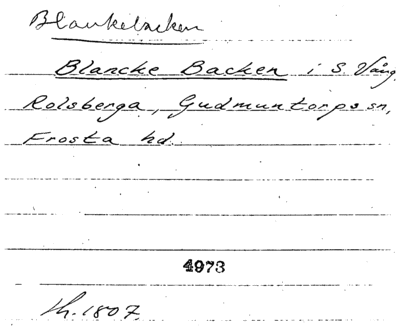 Blankebacken
Blancke Backen i S. Vång,
Rolsberga, Gudmuntorps sn,
Frosta hd.
4973
Lh. 1807.